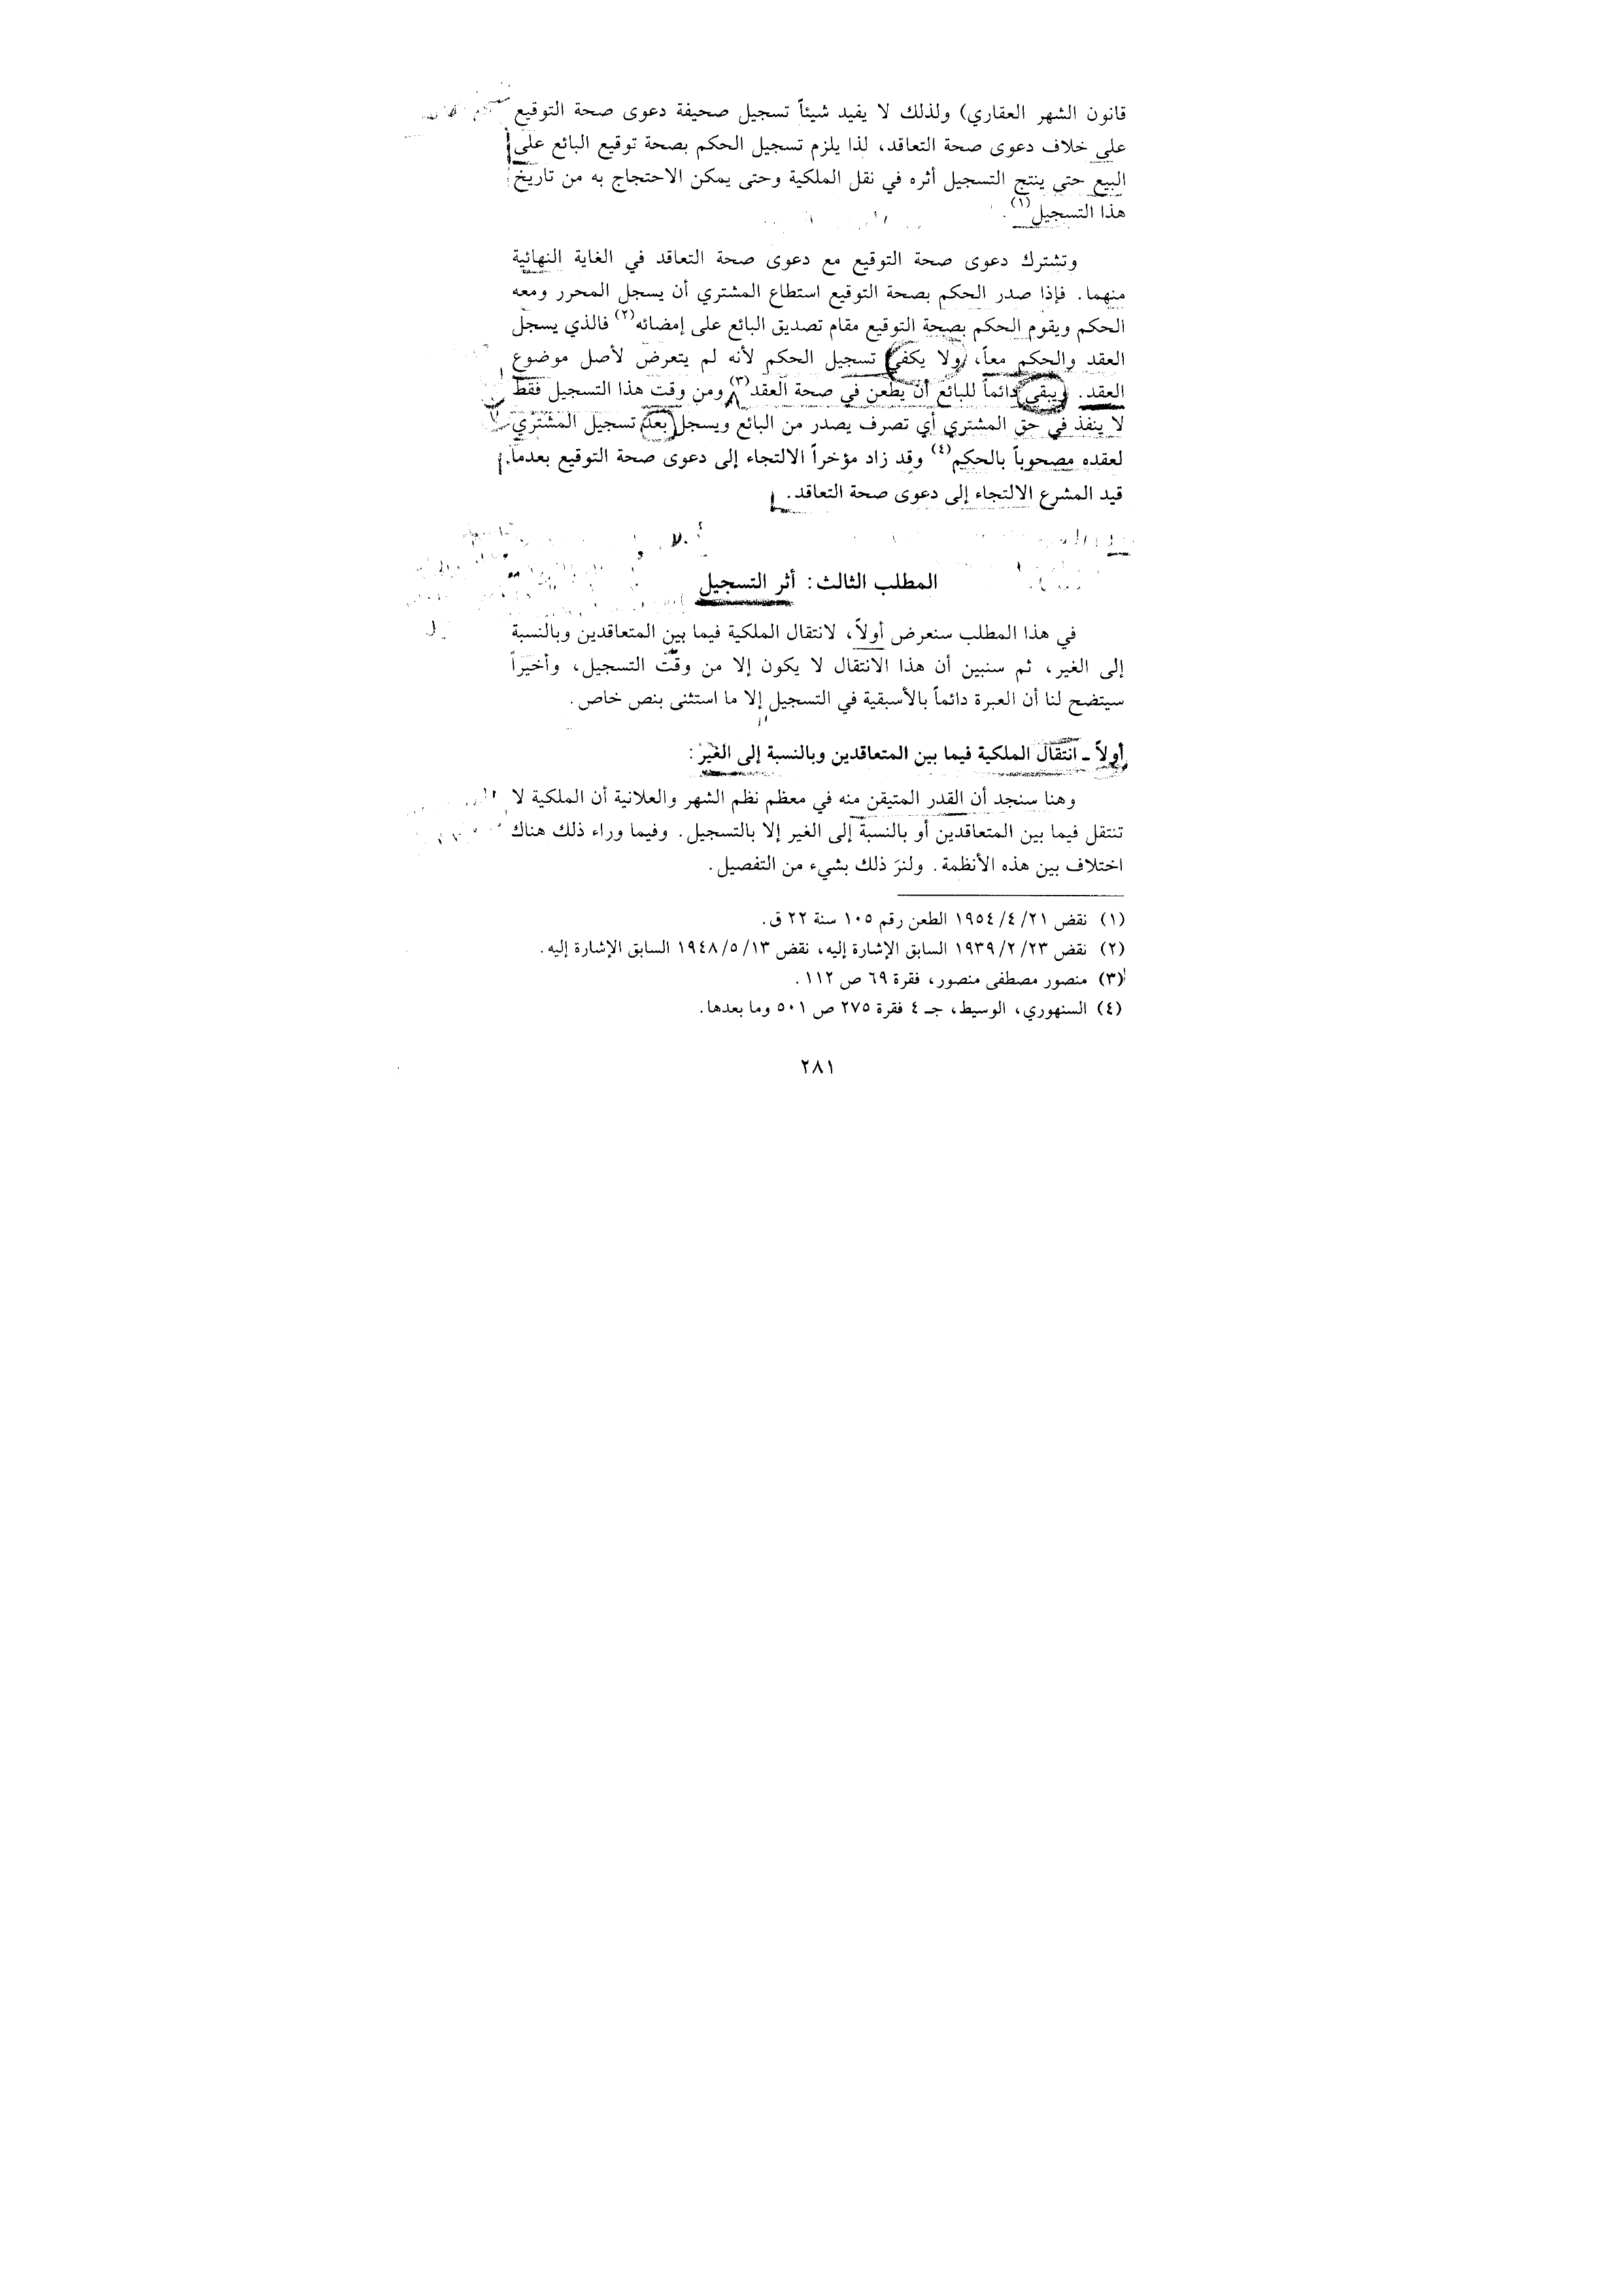 قانون الشهر العقاري) ولذلك لا يفيد شيئاً تسجيل صحيفة دعوى صحة التوقيع
على خلاف دعوى صحة التعاقد، لذا يلزم تسجيل الحكم بصحة توقيع البائع على
البيع حتى ينتج التسجيل أثره في نقل الملكية وحتى يمكن الاحتجاج به من تاريخ
هذا التسجيل(١).
وتشترك دعوى صحة التوقيع مع دعوى صحة التعاقد في الغاية النهائية
منهما. فإذا صدر الحكم بصحة التوقيع استطاع المشتري أن يسجل المحرر ومعه
الحكم ويقوم الحكم بصحة التوقيع مقام تصديق البائع على إمضائه(٢) فالذي يسجل
العقد والحكم معاً، ولا يكفي تسجيل الحكم لأنه لم يتعرض لأصل موضوع
العقد. ويبقى دائماً للبائع أن يطعن في صحة العقد(٣) ومن وقت هذا التسجيل فقط
لا ينفذ في حق المشتري أي تصرف يصدر من البائع ويسجل بعد تسجيل المشتري
لعقده مصحوباً بالحكم(٤) وقد زاد مؤخراً الالتجاء إلى دعوى صحة التوقيع بعدما
قيد المشرع الالتجاء إلى دعوى صحة التعاقد.
المطلب الثالث: أثر التسجيل
في هذا المطلب سنعرض أولاً، لانتقال الملكية فيما بين المتعاقدين وبالنسبة
إلى الغير، ثم سنبين أن هذا الانتقال لا يكون إلا من وقت التسجيل، وأخيراً
سيتضح لنا أن العبرة دائماً بالأسبقية في التسجيل إلا ما استثنى بنص خاص.
أولاً ـ انتقال الملكية فيما بين المتعاقدين وبالنسبة إلى الغير:
وهنا سنجد أن القدر المتيقن منه في معظم نظم الشهر والعلانية أن الملكية لا
تنتقل فيما بين المتعاقدين أو بالنسبة إلى الغير إلا بالتسجيل. وفيما وراء ذلك هناك
اختلاف بين هذه الأنظمة. ولنرَ ذلك بشيء من التفصيل.
(١) نقض ٢١/ ٤/ ١٩٥٤ الطعن رقم ١٠٥ سنة ٢٢ ق.
(٢) نقض ٢٣/ ٢/ ١٩٣٩ السابق الإشارة إليه، نقض ١٣/ ٥/ ١٩٤٨ السابق الإشارة إليه.
(٣) منصور مصطفى منصور، فقرة ٦٩ ص ١١٢.
(٤) السنهوري، الوسيط، جـ ٤ فقرة ٢٧٥ ص ٥٠١ وما بعدها.
٢٨١